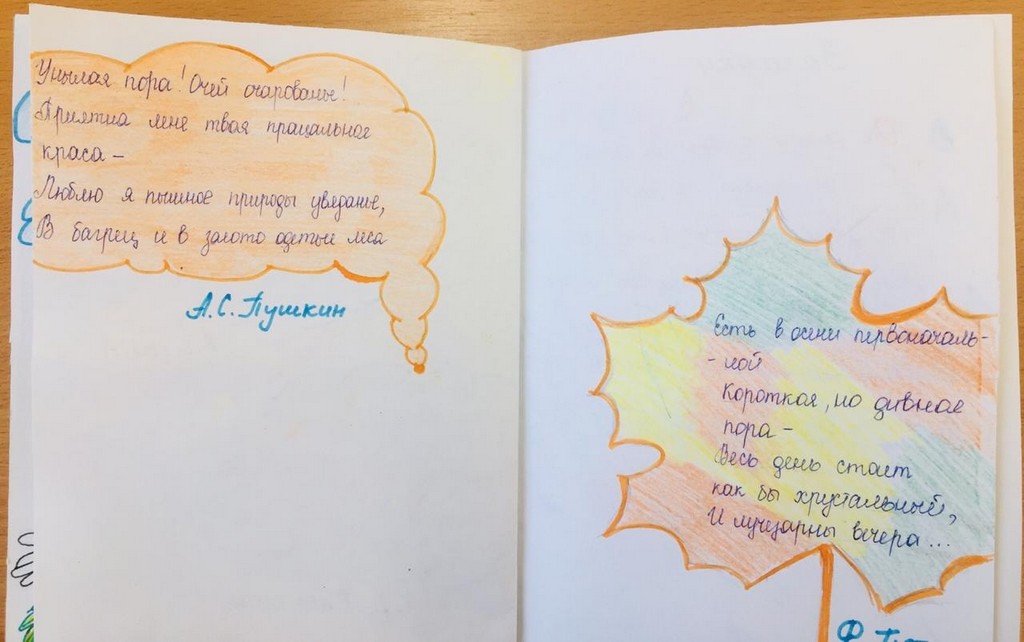 Унылая пора! Очей очарованье!
Приятна мне твоя пращальное
краса -
Люблю я пышное природы увяданье,
В багрец и в золото одетые леса
А.С. Пушкин
Есть в осени первоначаль-
- ной
Короткая, но дивная
пора -
Весь день стоит
как бы хрустальный,
И лучезарны вечера...
Ф.